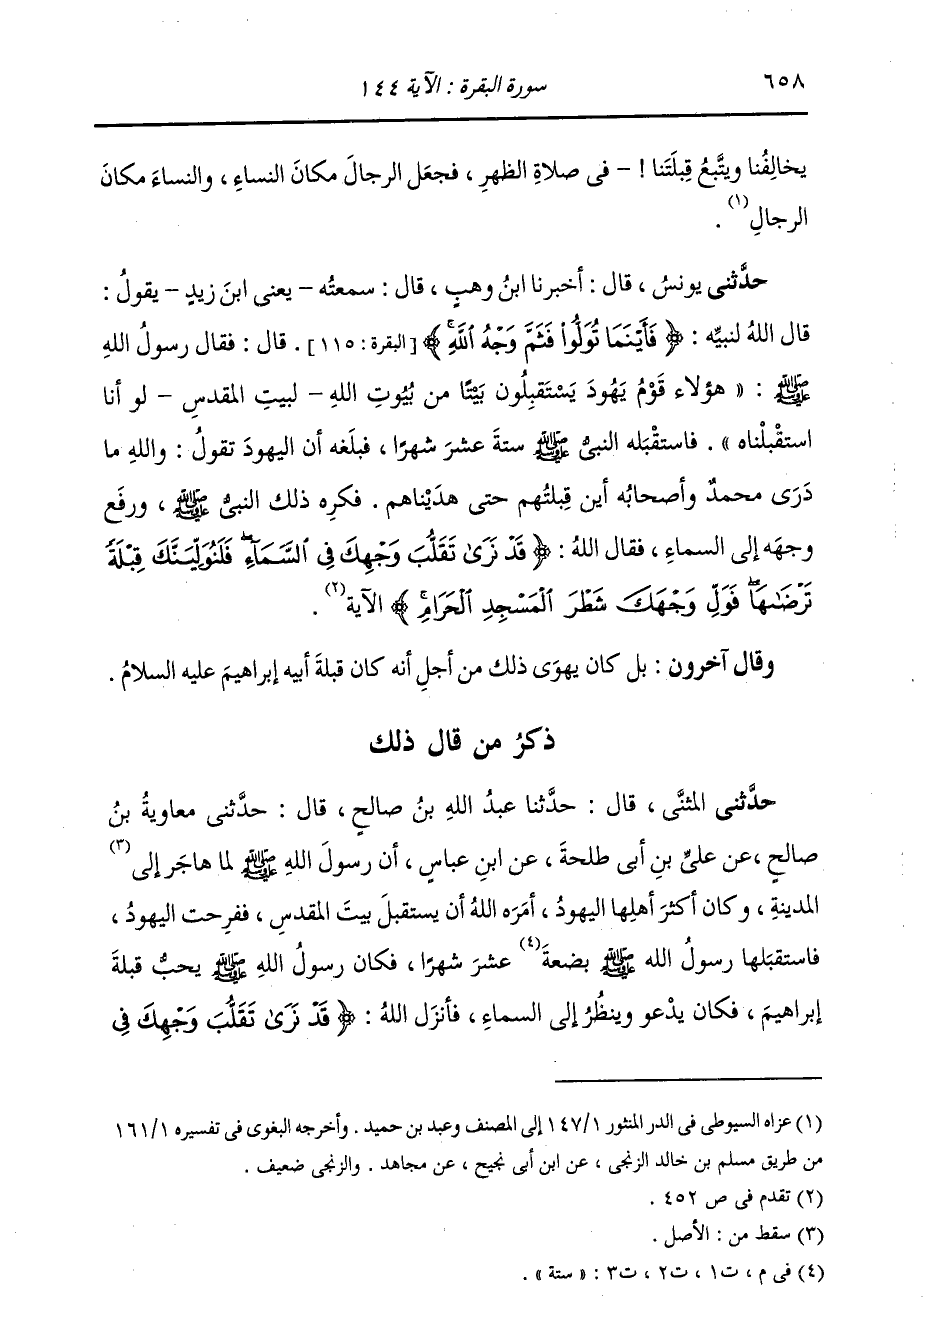 ٦٥٨ سورة البقرة : الآية ١٤٤
يخالِفُنا ويتَّبعُ قِبلَتَنا ! – فى صلاةِ الظهرِ ، فجعَل الرجالَ مكانَ النساءِ ، والنساءَ مكانَ
الرجالِ(١) .
حدَّثنى يونسُ ، قال : أخبرنا ابنُ وهبٍ ، قال : سمعتُه – يعنى ابنَ زيدٍ – يقولُ :
قال اللهُ لنبيِّه : ﴿ فَأَيْنَمَا تُوَلُّوا۟ فَثَمَّ وَجْهُ ٱللَّهِۚ ﴾ [البقرة: ١١٥] . قال : فقال رسولُ اللهِ
ﷺ : « هؤلاء قَوْمُ يَهُودَ يَسْتَقبِلُون بَيْتًا من بُيُوتِ اللهِ – لبيتِ المقدسِ – لو أنا
استقْبلْناه » . فاستقْبَله النبىُّ ﷺ ستةَ عشرَ شهرًا ، فبلَغه أن اليهودَ تقولُ : واللهِ ما
دَرَى محمدٌ وأصحابُه أين قِبلتُهم حتى هدَيْناهم . فكرِه ذلك النبىُّ ﷺ ، ورفَع
وجهَه إلى السماءِ ، فقال اللهُ : ﴿ قَدْ نَرَىٰ تَقَلُّبَ وَجْهِكَ فِى ٱلسَّمَآءِۖ فَلَنُوَلِّيَنَّكَ قِبْلَةً
تَرْضَىٰهَاۖ فَوَلِّ وَجْهَكَ شَطْرَ ٱلْمَسْجِدِ ٱلْحَرَامِۚ ﴾ الآية(٢) .
وقال آخرون : بل كان يهوَى ذلك من أجلِ أنه كان قبلةَ أبيه إبراهيمَ عليه السلامُ .
ذكرُ من قال ذلك
حدَّثنى المثنَّى ، قال : حدَّثنا عبدُ اللهِ بنُ صالحٍ ، قال : حدَّثنى معاويةُ بنُ
صالحٍ ،عن علىِّ بنِ أبى طلحةَ ، عن ابنِ عباسٍ ، أن رسولَ اللهِ ﷺ لما هاجَر إلى(٣)
المدينةِ ، وكان أكثرَ أهلِها اليهودُ ، أمَرَه اللهُ أن يستقبلَ بيتَ المقدسِ ، ففرِحت اليهودُ ،
فاستقبَلها رسولُ الله ﷺ بضعةَ(٤) عشرَ شهرًا ، فكان رسولُ اللهِ ﷺ يحبُّ قبلةَ
إبراهيمَ ، فكان يدْعو وينظُرُ إلى السماءِ ، فأنزَل اللهُ : ﴿ قَدْ نَرَىٰ تَقَلُّبَ وَجْهِكَ فِى
(١) عزاه السيوطى فى الدر المنثور ١٤٧/١ إلى المصنف وعبد بن حميد . وأخرجه البغوى فى تفسيره ١٦١/١
من طريق مسلم بن خالد الزنجى ، عن ابن أبى نجيح ، عن مجاهد . والزنجى ضعيف .
(٢) تقدم فى ص ٤٥٢ .
(٣) سقط من : الأصل .
(٤) فى م ، ت١ ، ت٢ ، ت٣ : « ستة » .